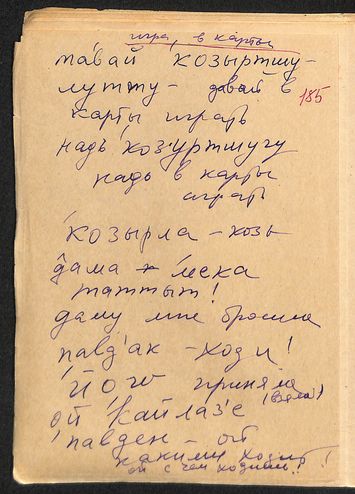 игра, в карты
та́вай козыртшу-
лутту - давай в
185
карты играть
надь козуртшугу
надь в карты
играть
'козырла - козы
дама меска
таттыт!
даму мне бросила
павд'ак - ходи!
'його приняла
(взяла)
ой 'кайлаз'е
'павден - ой
какими ходит!
ой с чем ходит!